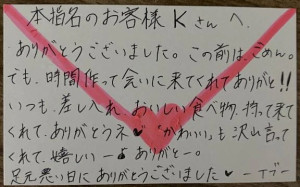 本指名のお客様Kさんへ
ありがとうございました。この前は、ごめん。
でも、時間作って会いに来てくれてありがと!!
いつも、差し入れ、おいしい食べ物、持って来て
くれて、ありがとうネ♥ "かわいい"も沢山言って
くれて、嬉しいー♪ ありがとー。
足元悪い日にありがとうございました♥